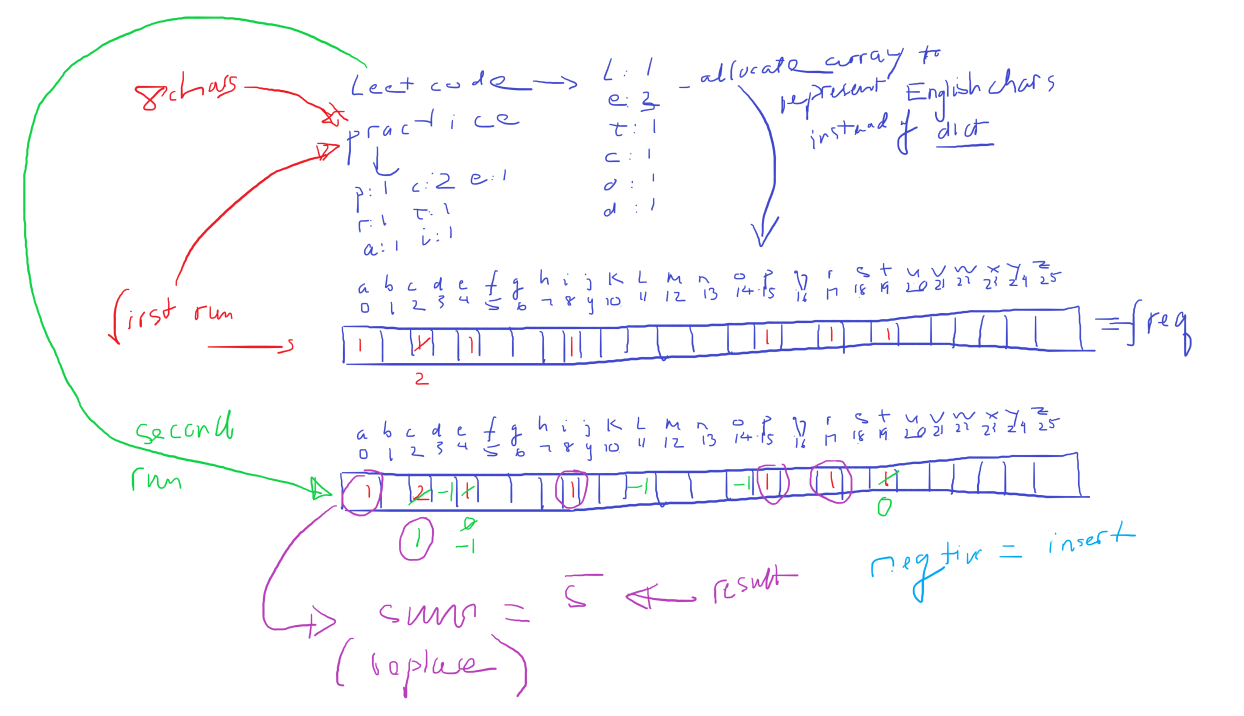 Leetcode
8 chars
practice
p:1 c:2 e:1
r:1 t:1
a:1 i:1
L: 1
e: 3
t: 1
c: 1
o: 1
d: 1
- allocate array to
represent English chars
instead of dict
first run
a b c d e f g h i j K L m n o p q r s t u v w x y z
0 1 2 3 4 5 6 7 8 9 10 11 12 13 14 15 16 17 18 19 20 21 22 23 24 25
1 1 1 1 1 1 1
2
= freq
second
run
a b c d e f g h i j K L m n o p q r s t u v w x y z
0 1 2 3 4 5 6 7 8 9 10 11 12 13 14 15 16 17 18 19 20 21 22 23 24 25
1 2 -1 1 1 -1 -1 1 1 1
1 0 0
-1
negtiv = insert
sum = 5 result
(replace)